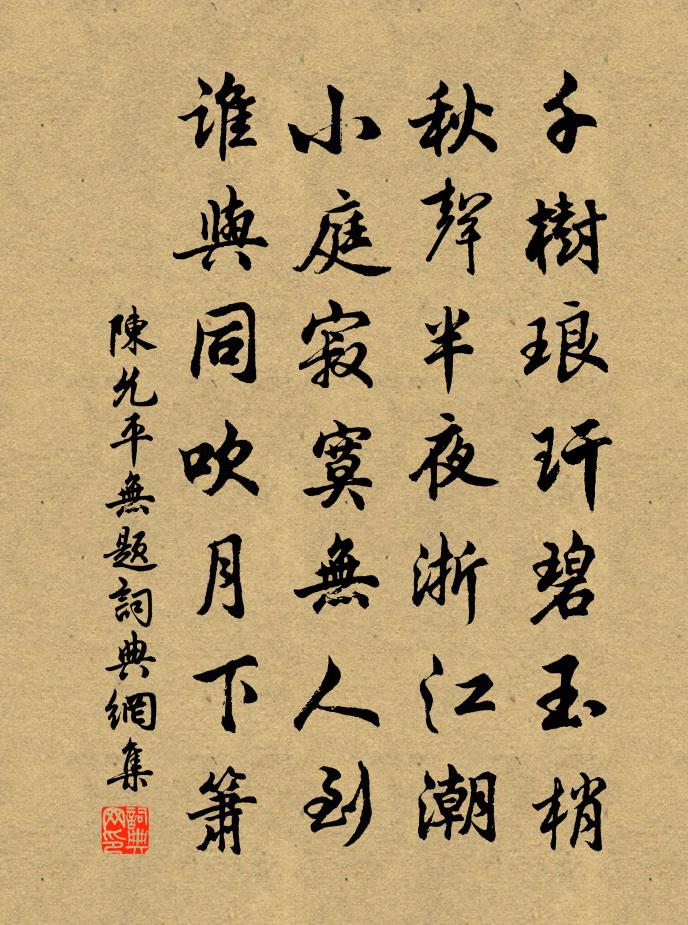 千樹琅玕碧玉梢
秋聲半夜浙江潮
小庭寂寞無人到
誰與同吹月下簫
陳允平無題詞典網集
詞典网印